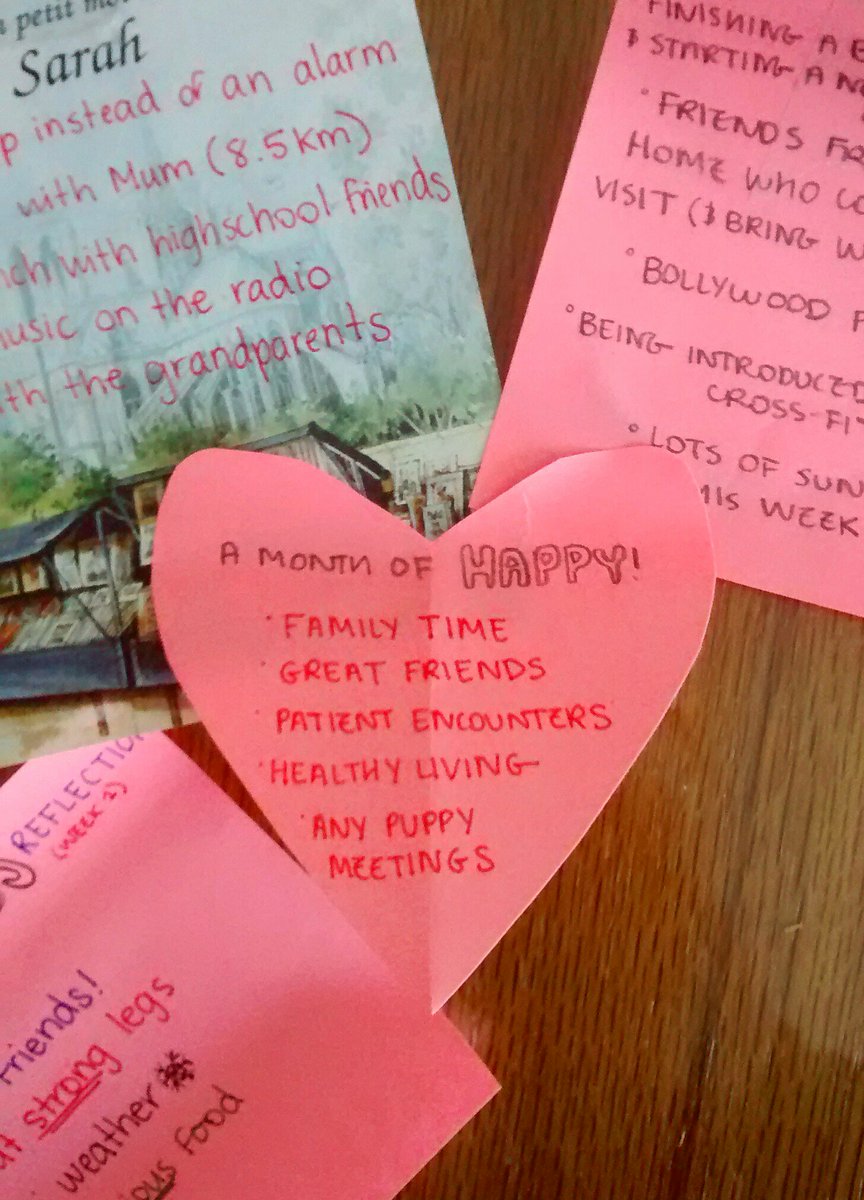 petit
Sarah
instead of an alarm
with Mum (8.5km)
with highschool friends
music on the radio
the grandparents
FINISHING A
& STARTING A
• FRIENDS
HOME WHO
VISIT (& BRING
• BOLLYWOOD
• BEING INTRODUCED
CROSS-FIT
• LOTS OF SUN
THIS WEEK
A MONTH OF HAPPY!
• FAMILY TIME
• GREAT FRIENDS
• PATIENT ENCOUNTERS
• HEALTHY LIVING
• ANY PUPPY
MEETINGS
REFLECTION
(WEEK
Friends!
strong legs
weather
food